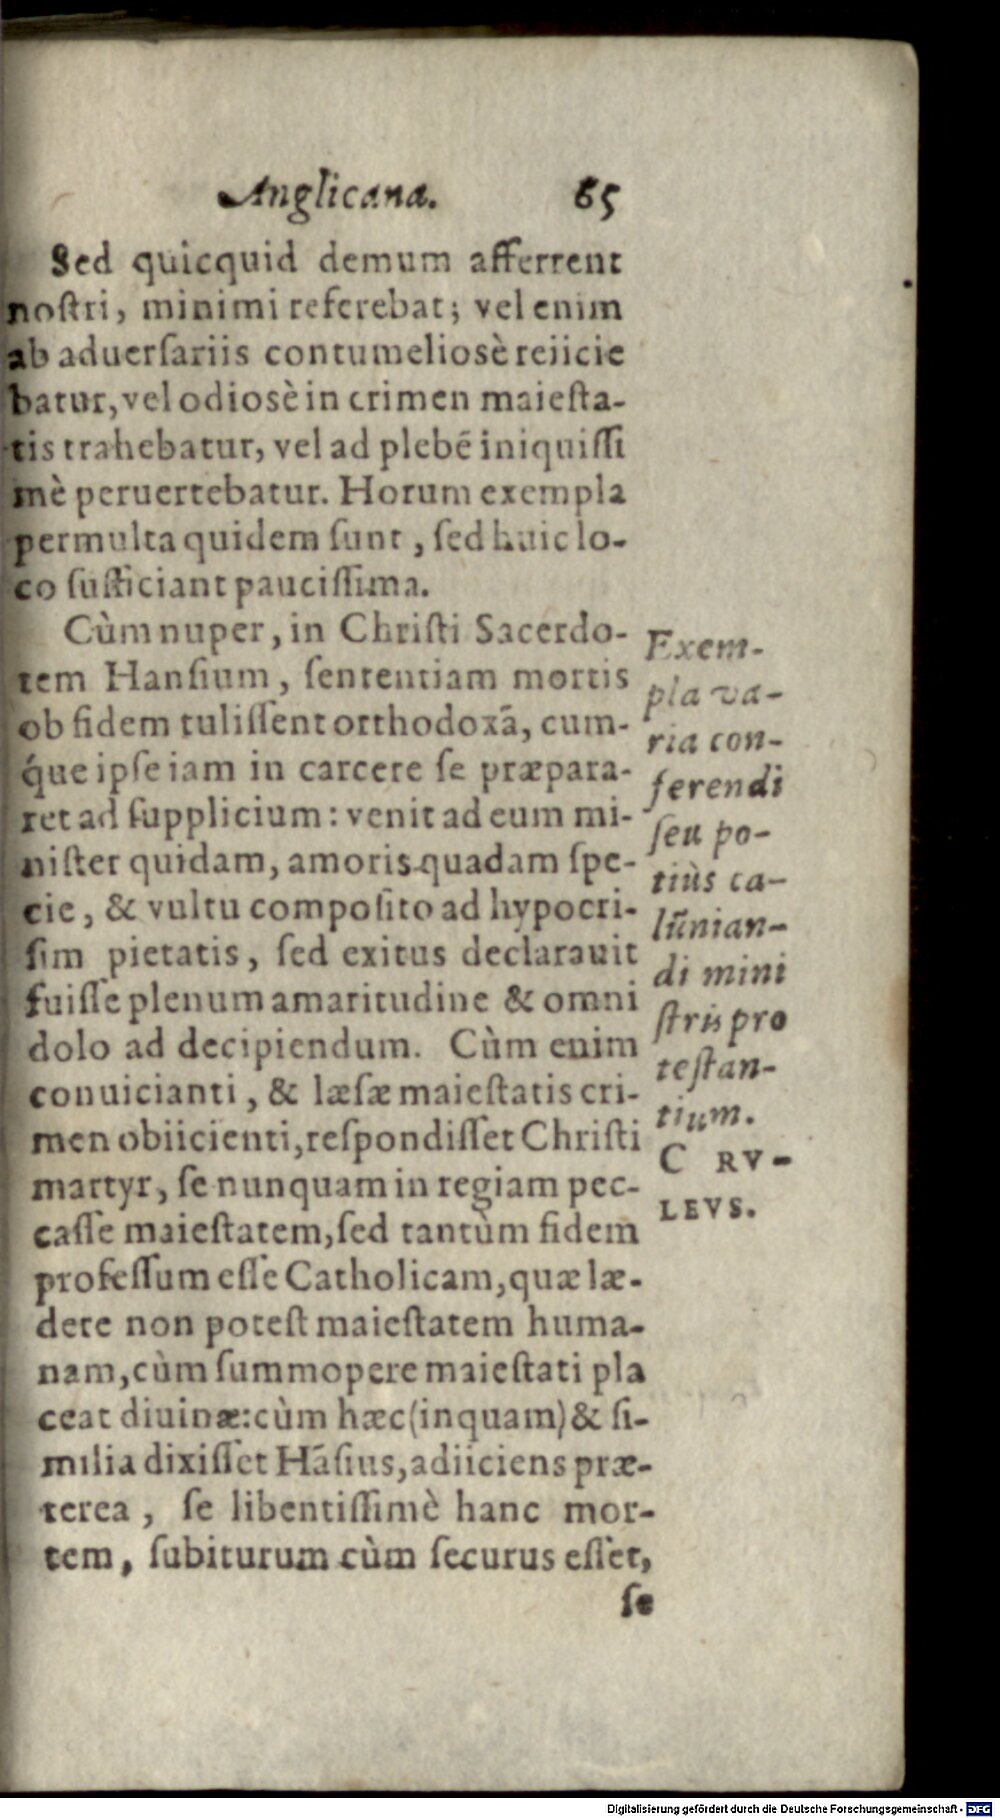 Anglicana. 65
Sed quicquid demum afferrent
noſtri, minimi referebat; vel enim
ab aduerſariis contumelioſè reiicie
batur, vel odioſè in crimen maieſta-
tis trahebatur, vel ad plebē iniquiſſi
mè peruertebatur. Horum exempla
permulta quidem ſunt, ſed huic lo-
co ſufficiant pauciſſima.
Cùm nuper, in Chriſti Sacerdo-
tem Hanſium, ſententiam mortis
ob fidem tuliſſent orthodoxā, cum-
q́ue ipſe iam in carcere ſe præpara-
ret ad ſupplicium: venit ad eum mi-
niſter quidam, amoris quadam ſpe-
cie, & vultu compoſito ad hypocri-
ſim pietatis, ſed exitus declarauit
fuiſſe plenum amaritudine & omni
dolo ad decipiendum. Cùm enim
conuicianti, & læſæ maieſtatis cri-
men obiicienti, reſpondiſſet Chriſti
martyr, ſe nunquam in regiam pec-
caſſe maieſtatem, ſed tantùm fidem
profeſſum eſſe Catholicam, quæ læ-
dere non poteſt maieſtatem huma-
nam, cùm ſummopere maieſtati pla
ceat diuinæ: cùm hæc (inquam) & ſi-
milia dixiſſet Hāſius, adiiciens præ-
terea, ſe libentiſſimè hanc mor-
tem, ſubiturum cùm ſecurus eſſet,
ſe
Exem-
pla va-
ria con-
ferendi
ſeu po-
tiùs ca-
lūnian-
di mini
ſtris pro
teſtan-
tium.
C RV-
LEVS.
Digitalisierung gefördert durch die Deutsche Forschungsgemeinschaft - DFG